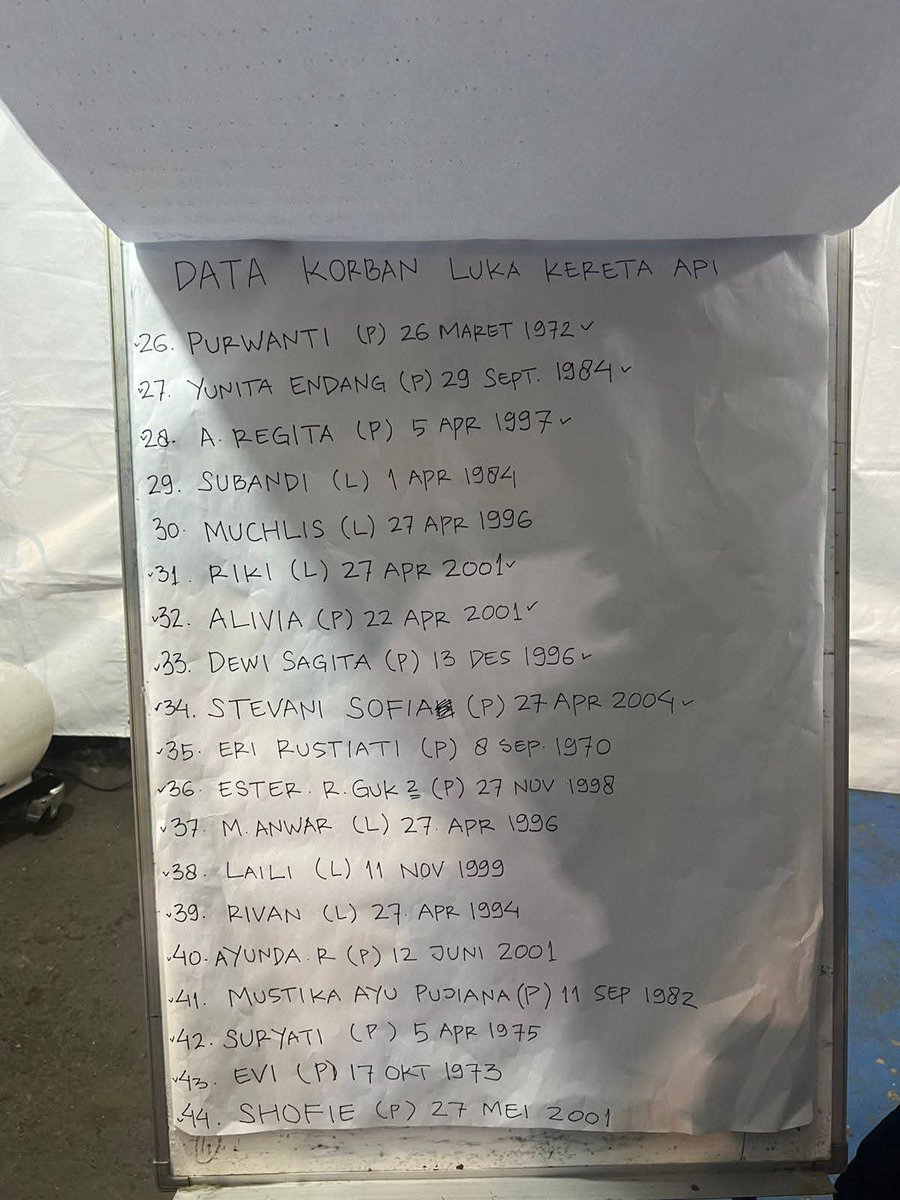 DATA KORBAN LUKA KERETA API
✓26. PURWANTI (P) 26 MARET 1972 ✓
✓27. YUNITA ENDANG (P) 29 SEPT. 1984 ✓
✓28. A. REGITA (P) 5 APR 1997 ✓
29. SUBANDI (L) 1 APR 1984
30. MUCHLIS (L) 27 APR 1996
✓31. RIKI (L) 27 APR 2001 ✓
✓32. ALIVIA (P) 22 APR 2001 ✓
✓33. DEWI SAGITA (P) 13 DES 1996 ✓
✓34. STEVANI SOFIA (P) 27 APR 2004 ✓
✓35. ERI RUSTIATI (P) 8 SEP. 1970
✓36. ESTER. R. GUK 2 (P) 27 NOV 1998
✓37. M. ANWAR (L) 27. APR 1996
✓38. LAILI (L) 11 NOV 1999
✓39. RIVAN (L) 27. APR 1994
✓40. AYUNDA. R (P) 12 JUNI 2001
✓41. MUSTIKA AYU PUJIANA (P) 11 SEP 1982
✓42. SURYATI (P) 5 APR 1975
✓43. EVI (P) 17 OKT 1973
✓44. SHOFIE (P) 27 MEI 2001